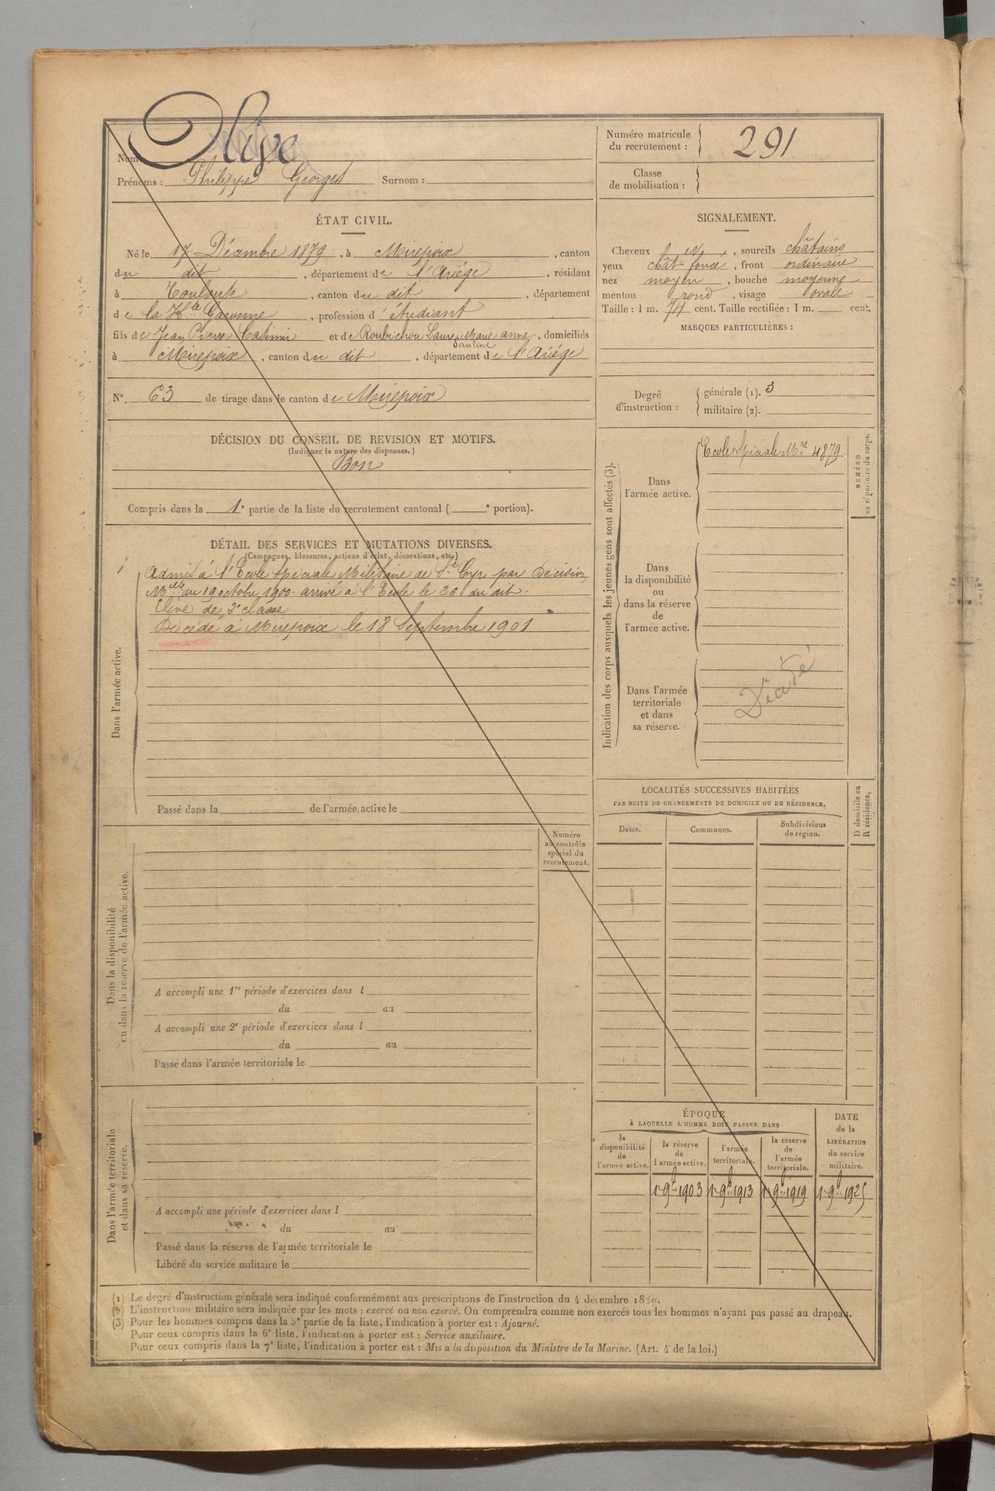 Nom Olive
Prénoms : Philippe Georges Surnom :
Numéro matricule du recrutement : 291
Classe de mobilisation :
ÉTAT CIVIL.
Né le 17 Décembre 1879, à Mirepoix, canton
du dit, département de l'Ariége, résidant
à Toulouse, canton du dit, département
de la Hte Garonne, profession d'étudiant
fils de Jean Pierre Casimir et de Roubichou Laure Marie anne, domiciliés
Pauline
à Mirepoix, canton du dit, département de l'Ariége
N° 63 de tirage dans le canton de Mirepoix
DÉCISION DU CONSEIL DE REVISION ET MOTIFS.
(Indiquer la nature des dispenses.)
Bon
Compris dans la 1e partie de la liste du recrutement cantonal ( e portion).
DÉTAIL DES SERVICES ET MUTATIONS DIVERSES.
(Campagnes, blessures, actions d'éclat, décorations, etc.)
Dans l'armée active.
Admis à l'Ecole Spéciale Militaire de St Cyr par Décision
Mlle du 19 octobre 1900. arrivé à l'Ecole le 26 du dit.
Elève de 2e classe
Décédé à Mirepoix le 18 Septembre 1901
Passé dans la de l'armée active le
Numéro au contrôle spécial du recrutement.
Dans la disponibilité ou dans la réserve de l'armée active.
A accompli une 1re période d'exercices dans l
du au
A accompli une 2e période d'exercices dans l
du au
Passé dans l'armée territoriale le
Dans l'armée territoriale et dans sa réserve.
A accompli une période d'exercices dans l
du au
Passé dans la réserve de l'armée territoriale le
Libéré du service militaire le
SIGNALEMENT.
Cheveux , sourcils châtains
yeux chât. foncé, front ordinaire
nez moyen, bouche moyenne
menton rond, visage ovale
Taille : 1 m. 74 cent. Taille rectifiée : 1 m. cent.
MARQUES PARTICULIÈRES :
Degré d'instruction :
générale (1). 3
militaire (2).
Indication des corps auxquels les jeunes gens sont affectés (3).
NUMÉRO au répertoire du corps.
Dans l'armée active.
Ecole Spéciale Mre 4879
Dans la disponibilité ou dans la réserve de l'armée active.
Dans l'armée territoriale et dans sa réserve.
Décédé
LOCALITÉS SUCCESSIVES HABITÉES
PAR SUITE DE CHANGEMENTS DE DOMICILE OU DE RÉSIDENCE.
Dates. Communes. Subdivisions de région.
D domicile ou R résidence.
ÉPOQUE
À LAQUELLE L'HOMME DOIT PASSER DANS
la disponibilité de l'armée active.
la réserve de l'armée active.
l'armée territoriale.
la réserve de l'armée territoriale.
DATE de la LIBÉRATION du service militaire.
1r 9bre 1903 1r 9bre 1913 1r 9bre 1919 1r 9bre 1925
(1) Le degré d'instruction générale sera indiqué conformément aux prescriptions de l'instruction du 4 décembre 1889.
(2) L'instruction militaire sera indiquée par les mots : exercé ou non exercé. On comprendra comme non exercés tous les hommes n'ayant pas passé au drapeau.
(3) Pour les hommes compris dans la 5e partie de la liste, l'indication à porter est : Ajourné.
Pour ceux compris dans la 6e liste, l'indication à porter est : Service auxiliaire.
Pour ceux compris dans la 7e liste, l'indication à porter est : Mis a la disposition du Ministre de la Marine. (Art. 4 de la loi.)